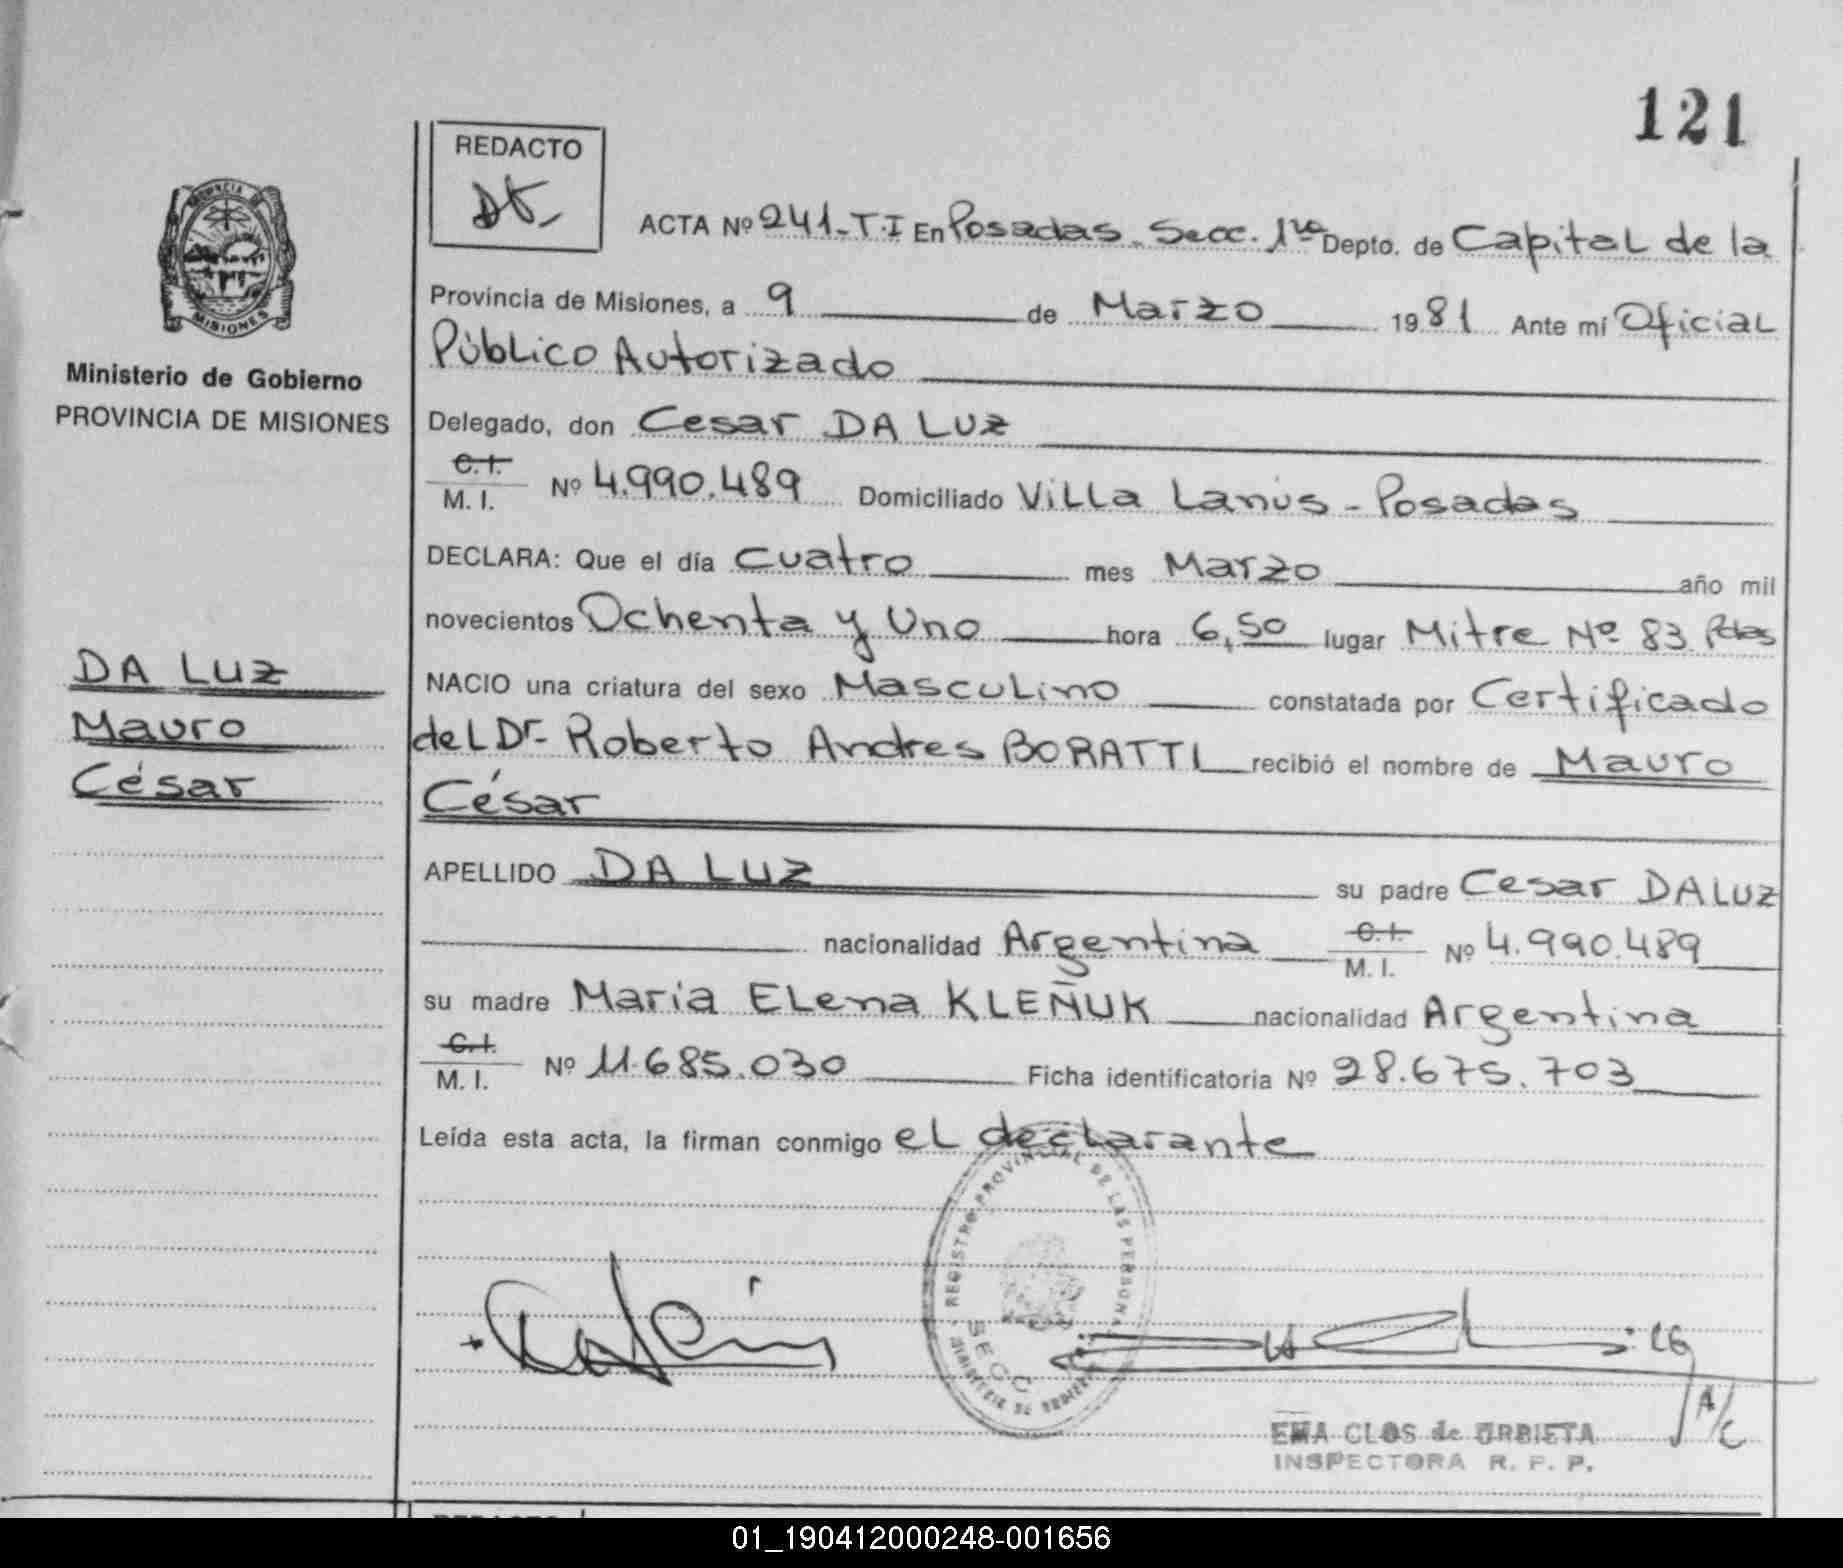 121
REDACTO
ACTA Nº 241-T.I En Posadas. Secc. 1ra Depto. de Capital de la
Provincia de Misiones, a 9 de Marzo 1981 Ante mí Oficial
Público Autorizado
PROVINCIA DE MISIONES
Ministerio de Gobierno
PROVINCIA DE MISIONES
Delegado, don Cesar DA LUZ
C.I.
M. I. Nº 4.990.489 Domiciliado Villa Lanús - Posadas
DECLARA: Que el día Cuatro mes Marzo año mil
novecientos Ochenta y Uno hora 6,50 lugar Mitre Nº 83 Pdas
DA LUZ
Mauro
César
NACIO una criatura del sexo Masculino constatada por Certificado
del Dr. Roberto Andres BORATTI recibió el nombre de Mauro
César
APELLIDO DA LUZ su padre Cesar DA LUZ
nacionalidad Argentina C.I.
M. I. Nº 4.990.489
su madre María Elena KLEÑUK nacionalidad Argentina
C.I.
M. I. Nº 11.685.030 Ficha identificatoria Nº 28.675.703
Leída esta acta, la firman conmigo el declarante
REGISTRO PROVINCIAL DE LAS PERSONAS
SECC
MINISTERIO DE GOBIERNO
A/C
EMA CLOS de URBIETA
INSPECTORA R. P. P.
01_190412000248-001656